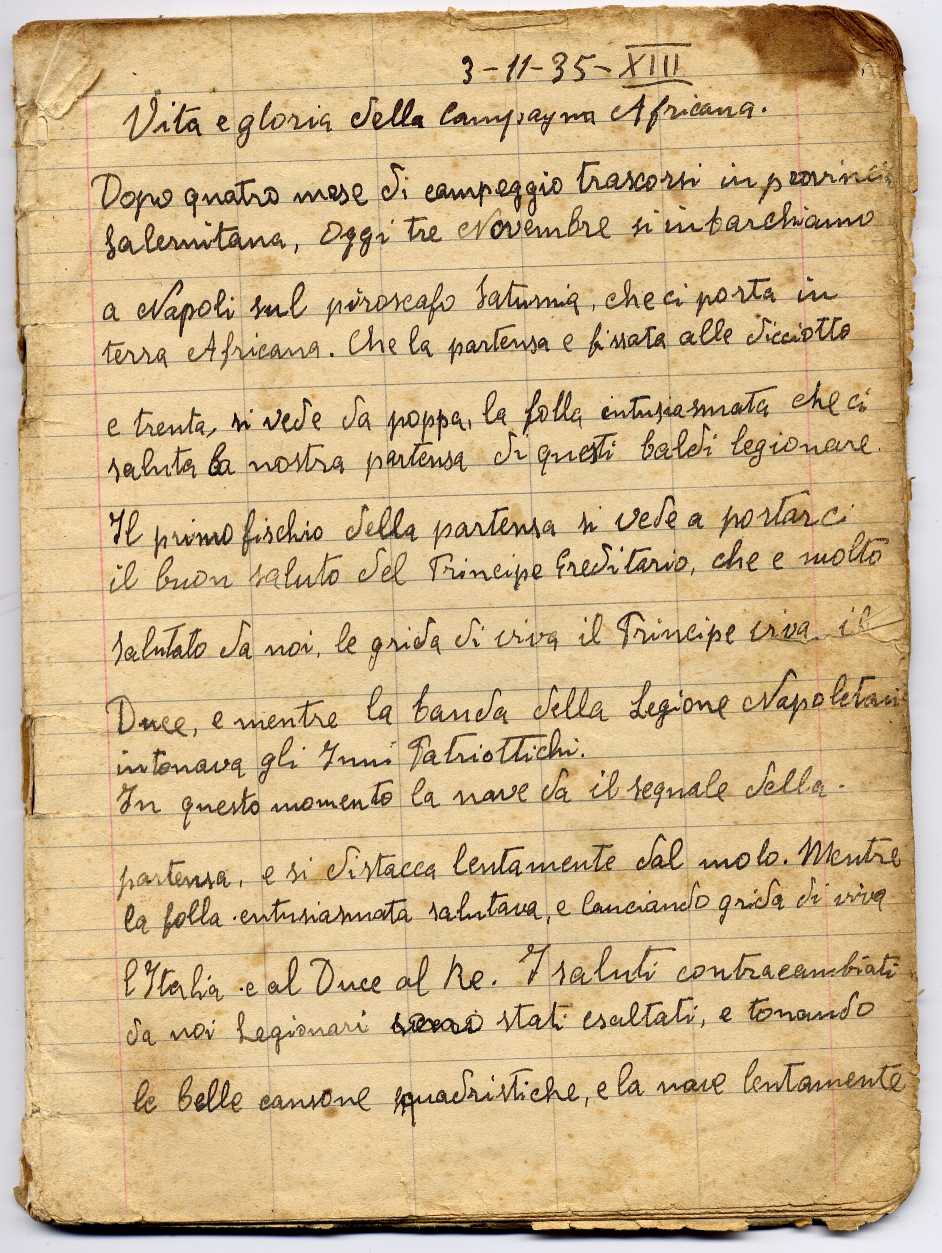 3-11-35-XIII
Vita e gloria della Campagna Africana.
Dopo quatro mese di campeggio trascorsi in provincia
Salernitana, Oggi tre Novembre si inbarchiamo
a Napoli sul piroscafo Saturnia, che ci porta in
terra Africana. Che la partensa e fissata alle dicciotto
e trenta, si vede da poppa, la folla entusiasmata che ci
saluta la nostra partensa di questi baldi legionare.
Il primo fischio della partensa si vede a portarci
il buon saluto del Principe Ereditario, che e molto
salutato da noi, le grida di viva il Principe viva il
Duce, e mentre la banda della Legione Napoletana
intonava gli Inni Patriottichi.
In questo momento la nave da il segnale della.
partensa, e si distacca lentamente dal molo. Mentre
la folla entusiasmata salutava, e lanciando grida di viva
l'Italia e al Duce al Re. I saluti contracambiati
da noi Legionari stati esaltati, e tonando
le belle cansone squadristiche, e la nave lentamente